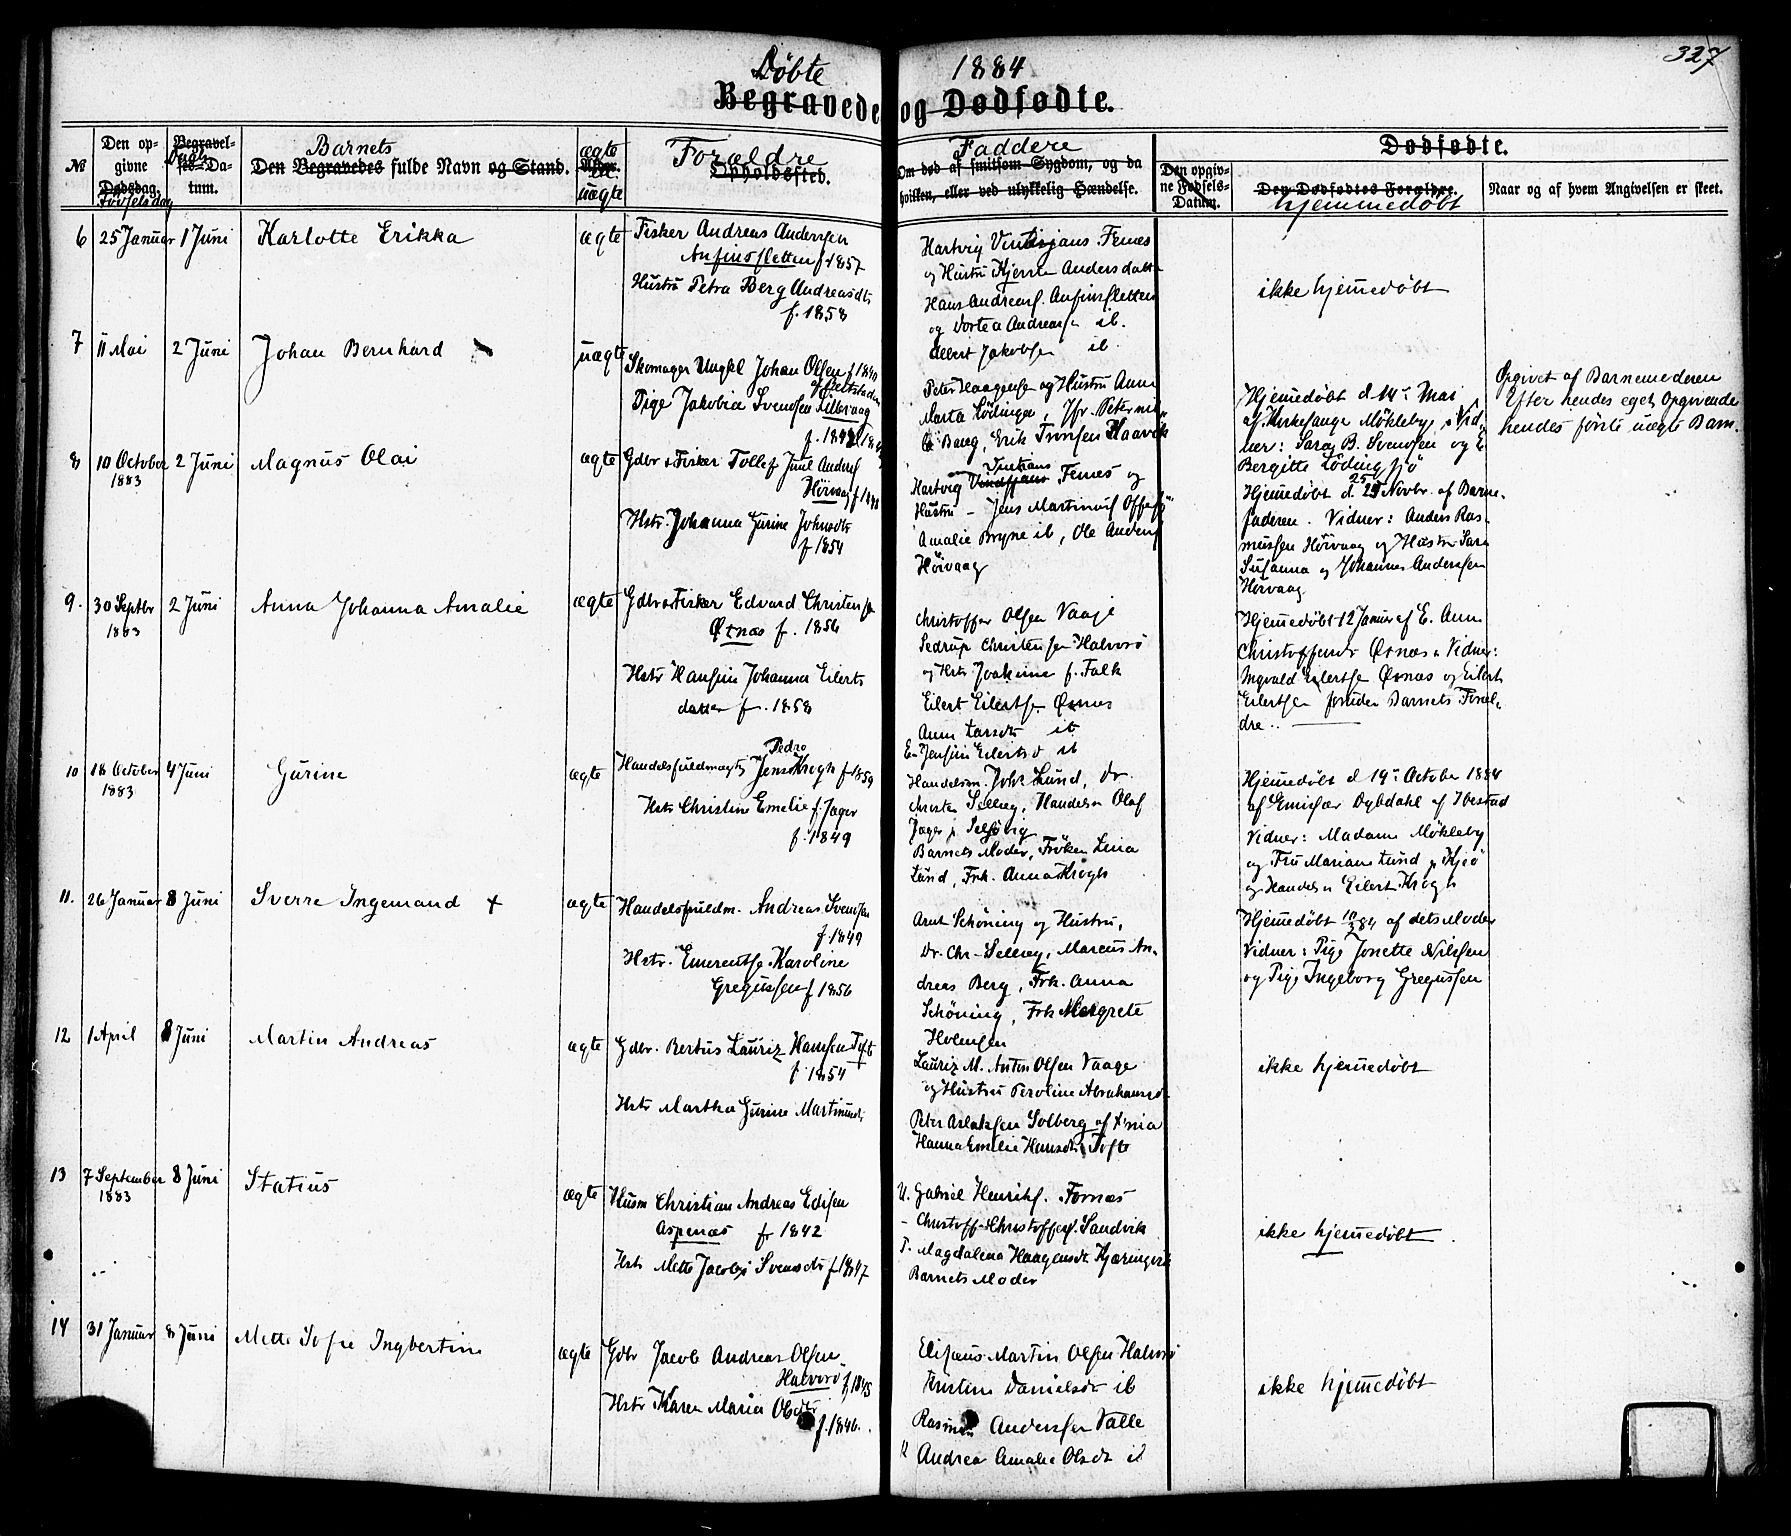 327
Döbte 1884
Begravede og Dødfødte.
№
Den opgivne Dødsdag. Födselsdag
Begravelses-Datum. Daabs
Barnets
Den Begravedes fulde Navn og Stand.
ægte
uægte
Forældre
Opholdssted.
Faddere
Om død af smitsom Sygdom, og da
hvilken, eller ved ulykkelig Hændelse.
Den opgivne Fødsels-Datum.
Dødfødte.
Den Dødfødtes Forældre.
hjemmedøbt
Naar og af hvem Angivelsen er skeet.
6 25 Januar 1 Juni Karlotte Erikka ægte
Fisker Andreas Anderssen
Anfinsletten f 1857
Hustru Petra Berg Andreasdtr
f. 1858
Hartvig Fenæs
og Hustru
Hans Andreas. Anfinsletten
og Dortea ib.
Albert Jakobsen ib.
ikke hjem̅edøbt
7 11 Mai 2 Juni Johan Bernhard uægte
Skomager Ungkl Johan Olsen
Pige Jakobia Svendsen
Peter Haagensen og Hustru Anne
Marta Lödingen, Jfr. Peter
Bang, Erik
Hjem̅edøbt d 14de Mai
af Kirkesanger Møkleby, Vid
ner: Sara B. Svendsen og E
Bergitte
Opgivet af Barnemoderen
Efter hendes eget Opgivende
hendes förste uægte Barn.
8 10 October 1883 2 Juni Magnus Olai ægte
Gdbr & Fisker Tollef Juul Anders
Hörvaag
Hstr. Johanna Gurine Johnsdtr
f 1854
Hartvig Fenæs og
Hustru - Jens
Amalie Bryne ib, Ole Anders
Hörvaag
Hjem̅edøbt d. 25 Novbr. af Barne-
faderen. Vidner: Anders Ras-
mussen Hörvaag og Hustru Sara
Susanna og Johannes Anderssen
Hörvaag
9. 30 Septbr 1883 2 Juni Anna Johanna Amalie ægte
Gdbr & Fisker Edvard Christensen
Øxnæs f. 1856
Hstr Hansine Johanna Eilerts
datter f. 1858
Christoffer Olsen Vaage
Sedrup Christensen Halvorö
og Hstr Joakime f. Falk
Eilert Eilertsen Øxnæs
Anne Larsdtr ib
E. Jensine Eilertsd ib
Hjem̅edøbt 12 Januar af E. Anna
Øxnæs Vidner:
Ingvald Eilertsen Øxnæs og Eilert
Eilertsen foruden Barnets Foræl-
dre.
10 18 October 1883 4 Juni Gurine ægte
Handelsfuldmægtig Jens Pedro Krogh f 1859
Hstr Christine Emelie f. Jager
f. 1849
Handelsm. Johs Lund, Dr.
Christen Selleng, Handelsm Olaf
Jager
Barnets Moder, Frøken Lina
Lund, Frk. Anna Krogh
Hjem̅edøbt d 19de October 1884
af Emisær Dybdahl af Ibestad
Vidner: Madam Møkleby
og Fru Mariane Lund
og Handelsm Eilert Krogh
11. 26 Januar 8 Juni Sverre Ingemand + ægte
Handelsfuldm. Andreas Svendsen
f. 1849
Hstr. Emerentse Karoline
Gregussen f 1856
Arnt Schöning og Hustru,
Dr. Chr. Selleng, Marcus An-
dreas Berg, Frk. Anna
Schöning, Frk Margrete
Holmgren
Hjem̅edøbt 10/3 84 af dets Moder
Vidner: Pige Jonette Nilsen
og Pige Ingeborg Gregussen
12 1 April 8 Juni Martin Andreas ægte
Gdbr. Bertus Lauriz Hansen Toft
f 1854
Hstr Martha Gurine Martinusdtr
Lauriz M. Anton Olsen Vaage
og Hustru Peroline Abrahamsdtr
Peter Aslaksen Solberg af
Hanna Emelie Hansdtr Tofte
ikke hjem̅edøbt
13 7 September 1883 8 Juni Statius ægte
Husm Christian Andreas Edisen
Aspenæs f 1842
Hstr Mette Jacobs Svensdtr f 1847
U. Gabriel Henriks. Fornæs
- Christoff. Christoffers. Sandvik
P. Magdalena Haagensdtr Kjæringvik
Barnets Moder
ikke hjem̅edøbt.
14 31 Januar 8 Juni Mette Sofie Ingbertine ægte
Gdbr Jacob Andreas Olsen
Halvorö f 1845
Hstr Karen Maria Olsdtr
f. 1846.
Elisæus Martin Olsen Halvorö
Kristine Danielsdtr ib
Rasmus Anderssen Valle
Andrea Amalie Olsdtr ib
ikke hjem̅edøbt